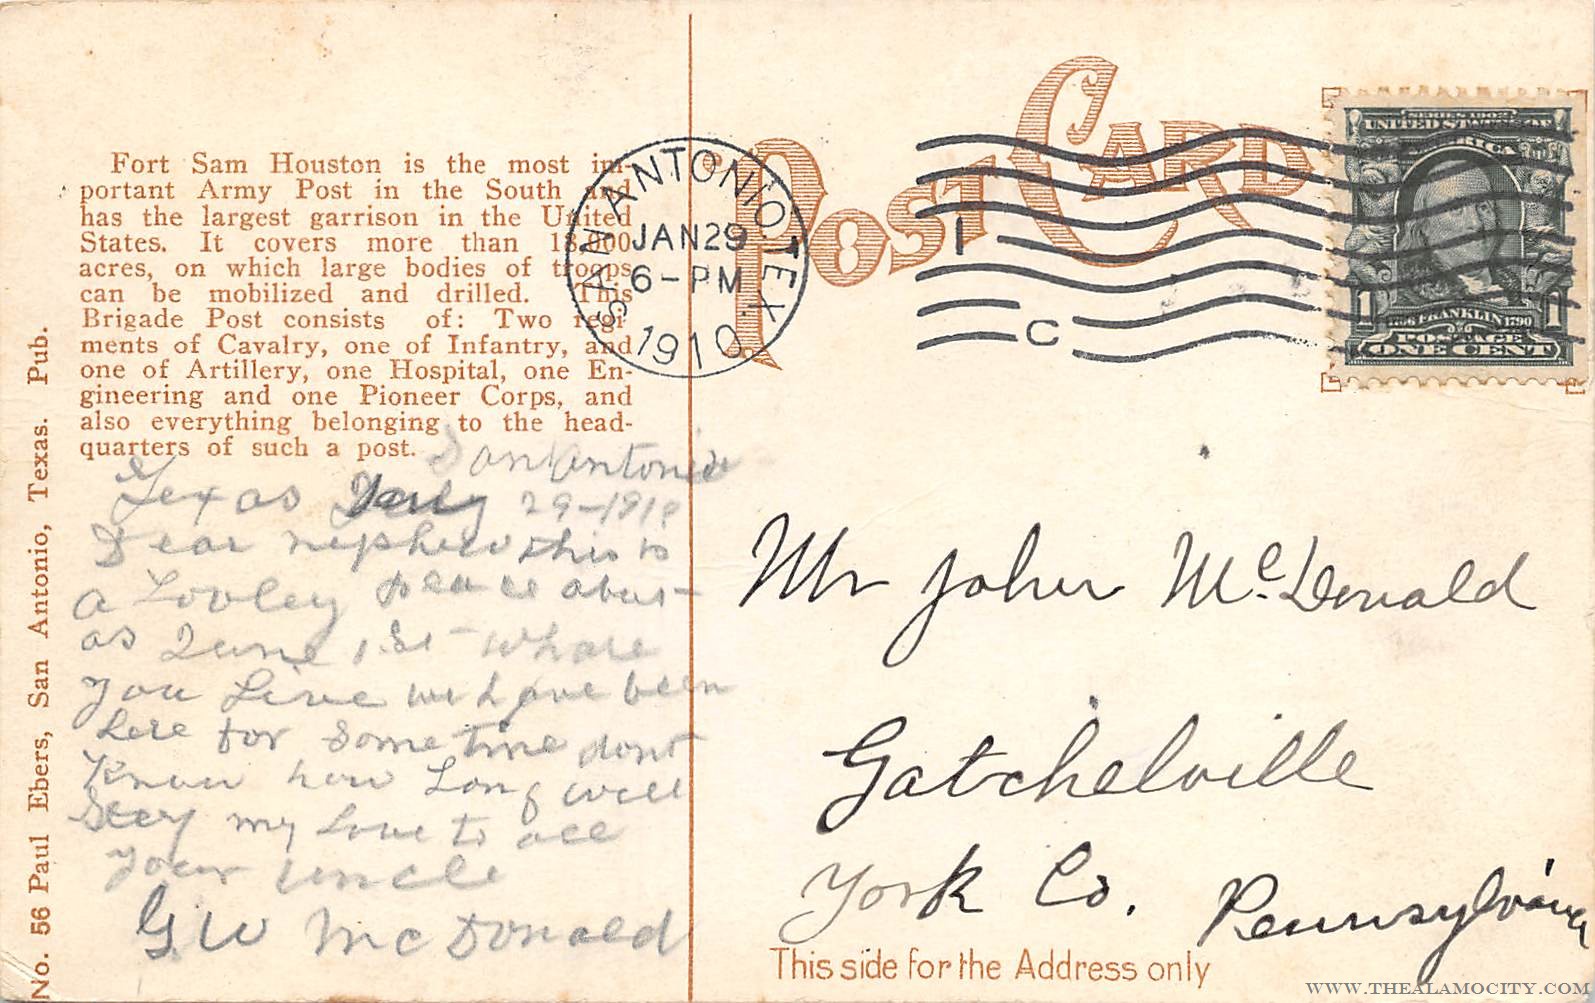 Fort Sam Houston is the most im-
portant Army Post in the South and
has the largest garrison in the United
States. It covers more than 18,000
acres, on which large bodies of troops
can be mobilized and drilled. This
Brigade Post consists of: Two regi-
ments of Cavalry, one of Infantry, and
one of Artillery, one Hospital, one En-
gineering and one Pioneer Corps, and
also everything belonging to the head-
quarters of such a post.
No. 56 Paul Ebers, San Antonio, Texas. Pub.
San Antonio
Texas 29-1910
Dear nephew this is
a Lovley peace abut
as June 1st whare
you Live we have been
here for some time dont
Know how Long will
Stay my Love to all
your uncle
G. W McDonald
POST CARD
SAN ANTONIO, TEX.
JAN 29
6-PM
1910
1
C
SERIES 1902
UNITED STATES OF
AMERICA
1706 FRANKLIN 1790
1 POSTAGE 1
ONE CENT
Mr John McDonald
Gatchelville
York Co.
Pennsylvania
This side for the Address only
WWW.THEALAMOCITY.COM